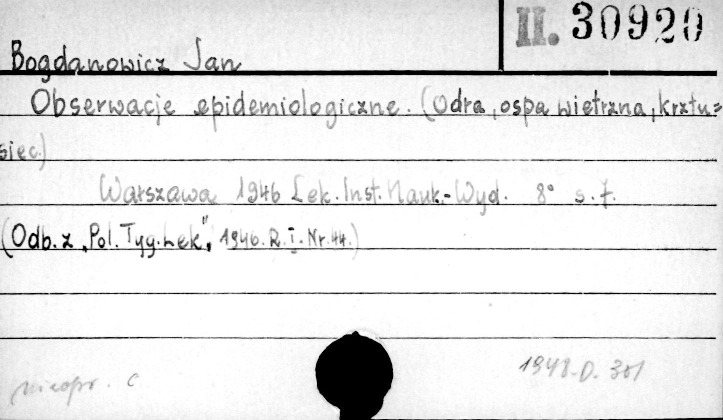 II. 30920
Bogdanowicz Jan
Obserwacje epidemiologiczne. (Odra, ospa wietrzna, krztu=
siec.)
Warszawa 1946 Lek. Inst. Nauk.-Wyd. 8° s. 7.
(Odb. z „Pol. Tyg. Lek", 1946. R. I. Nr. 44.)
nieopr. c
1948-D. 301